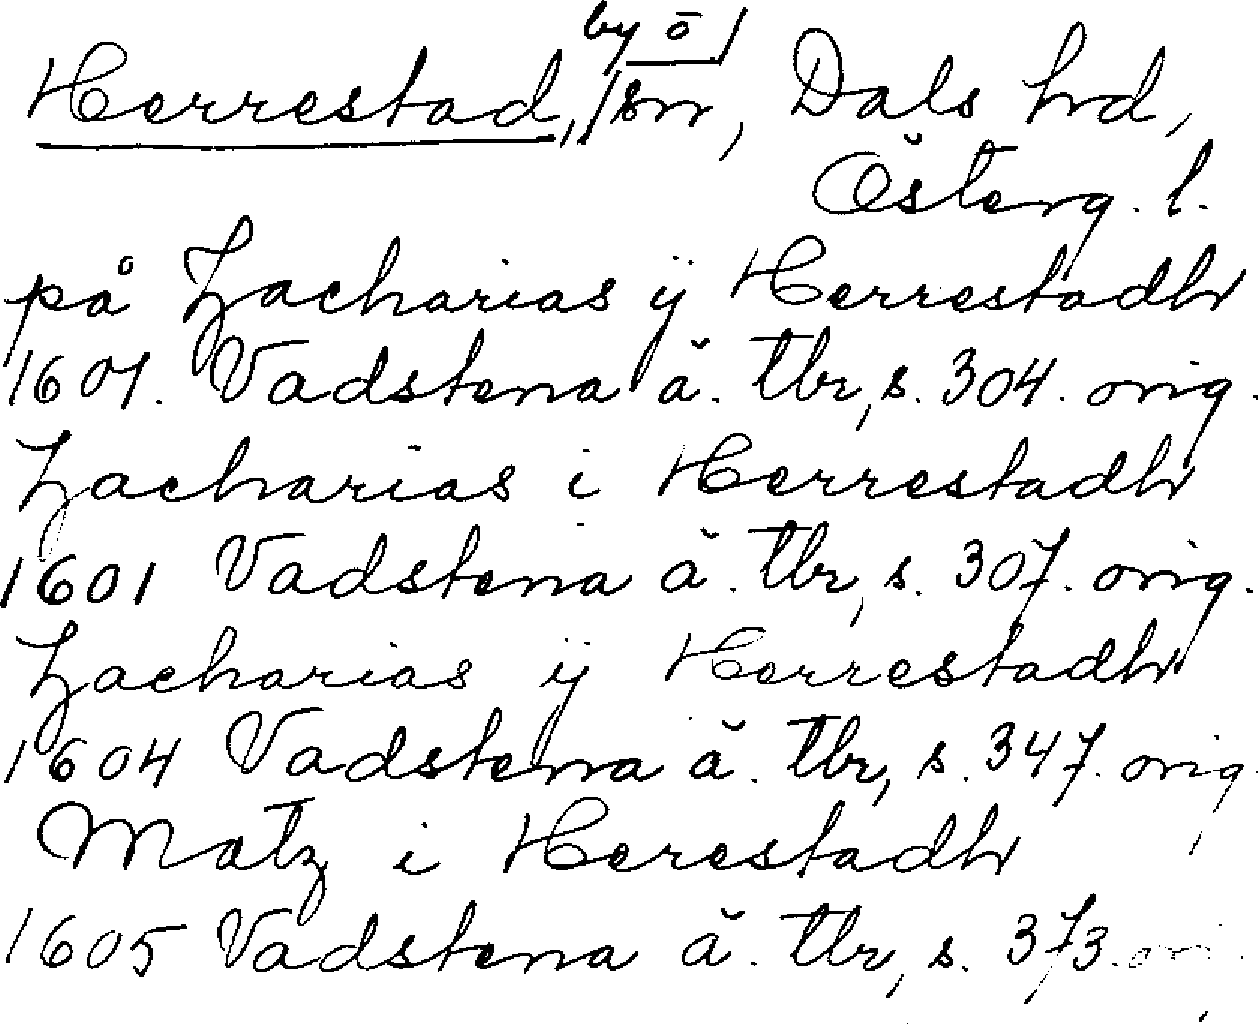 by ō
Herrestad, sn, Dals hd,
Österg. l.
på Zacharias ÿ Herrestadh
1601. Vadstena ä. tbr, s. 304. orig.
Zacharias i Herrestadh
1601 Vadstena ä. tbr, s. 307. orig.
Zacharias ÿ Herrestadh
1604 Vadstena ä. tbr, s. 347. orig.
Matz i Herestadh
1605 Vadstena ä. tbr, s. 373.